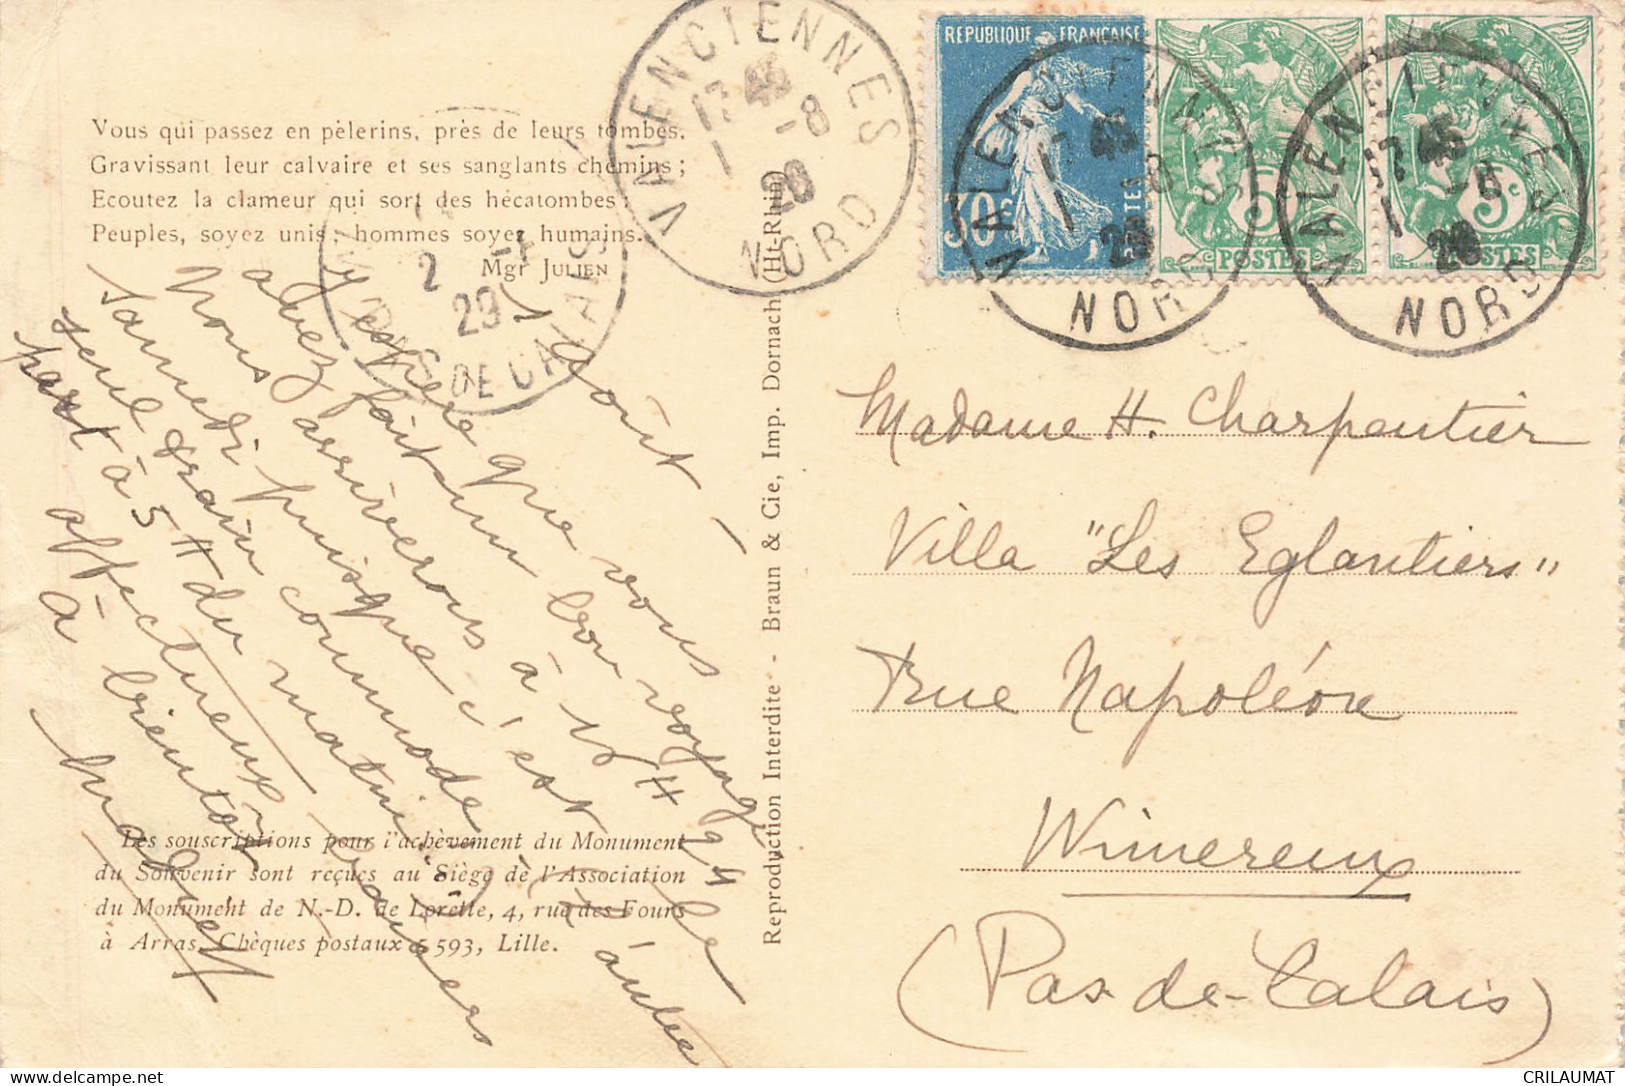 VALENCIENNES
17 45
1 -8
28
NORD
REPUBLIQUE FRANÇAISE
30c
POSTES
VALENCIENNES
17 45
1 -8
28
NORD
5c
POSTES
VALENCIENNES
17 45
1 -8
28
NORD
5c
POSTES
2
29
PAS DE CALAIS
Vous qui passez en pèlerins, près de leurs tombes,
Gravissant leur calvaire et ses sanglants chemins ;
Ecoutez la clameur qui sort des hécatombes :
Peuples, soyez unis ; hommes soyez humains.
Mgr JULIEN
1 août -
J'espère que vous
avez fait un bon voyage
nous arriverons à 15 H 24 le
samedi puisque c'est le
seul train commode
part à 5 H du matin
affectueux baisers
à bientôt
Les souscriptions pour l'achèvement du Monument
du Souvenir sont reçues au Siège de l'Association
du Monument de N.-D. de Lorette, 4, rue des Fours
à Arras. Chèques postaux 5 593, Lille.
Reproduction Interdite - Braun & Cie, Imp. Dornach (Ht-Rhin)
Madame H. Charpentier
Villa "Les Eglantiers"
rue Napoléon
Wimereux
(Pas-de-Calais)
CRILAUMAT